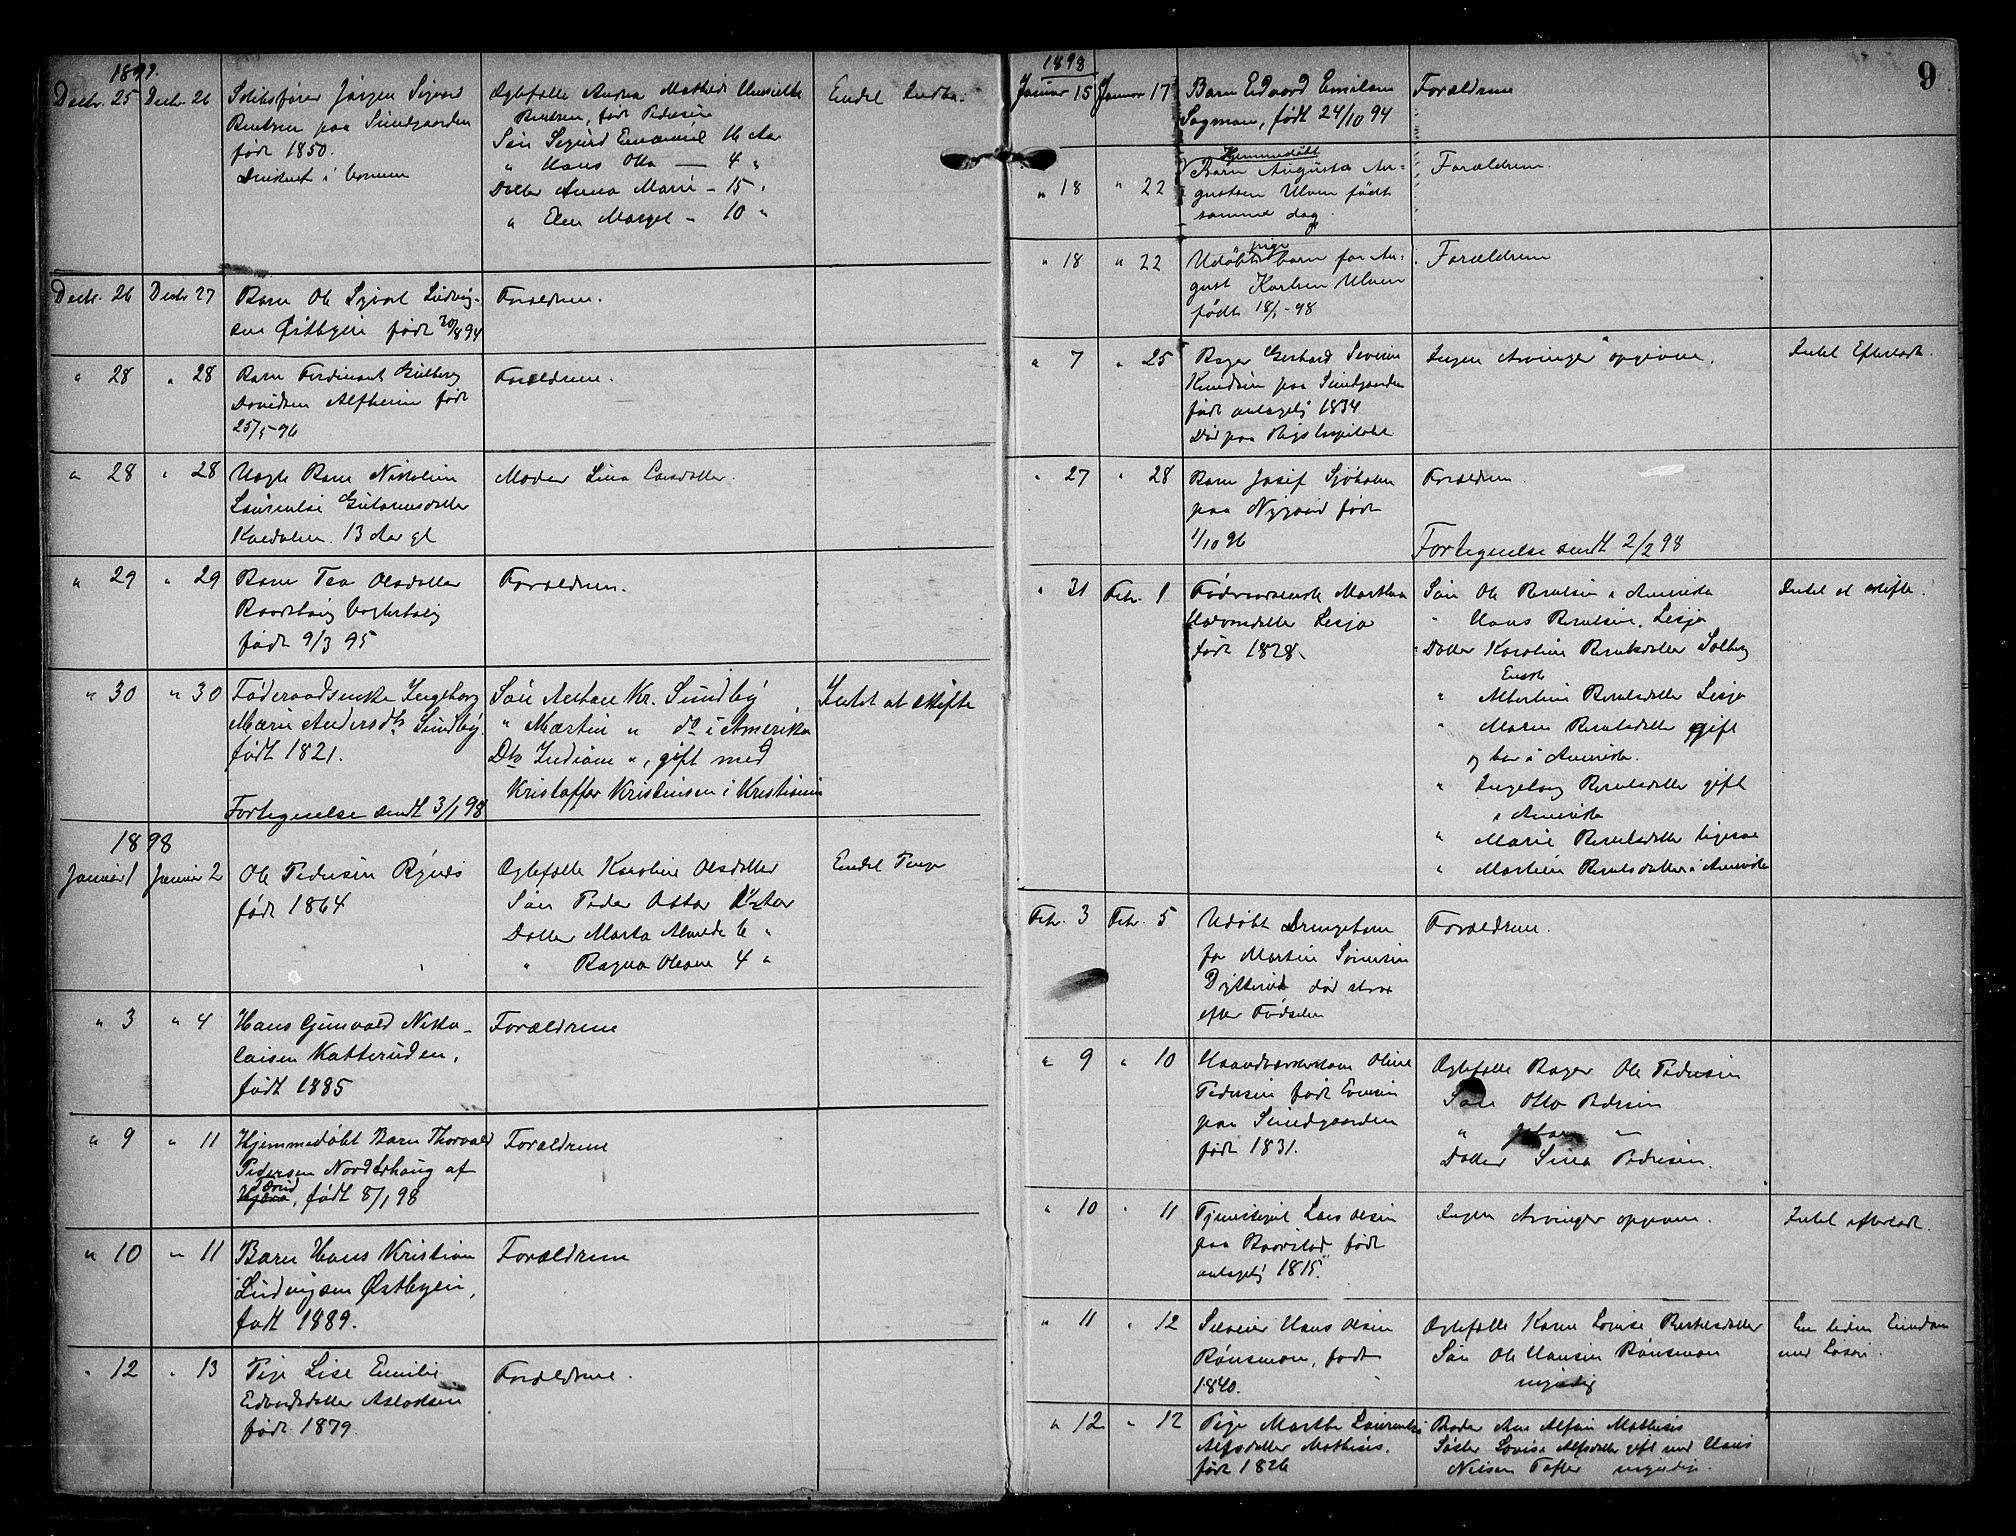 1897.
Decbr. 25 Decbr. 26 Skibsfører Jørgen Sigvard
Berntsen paa Sundgaarden
født 1850.
Druknet i havnen
Ægtefælle Andrea Mathilde Henriette
Berntsen, født Pedersen
Søn Sigurd Emanuel 16 Aar
" Hans Otto — 4 "
Datter Anna Marie - 15 "
" Elen Margit - 10 "
Endel Indbo.
Decbr. 26 Decbr 27 Barn Ole Sigvart Ludvig-
sen Østbyeie født 30/8 94
Forældrene.
" 28 " 28 Barn Ferdinant Gulberg
Davidsen Alfheim født
25/5 - 96
Forældrene.
" 28 " 28 Uægte Barn Nikoline
Laurentse Gulamsdatter
Kardalen. 13 Aar gl
Moder Lina Larsdatter.
" 29 " 29 Barn Tea Olsdatter
født 9/3 95
Forældrene.
" 30 " 30 Føderaadsenke Ingeborg
Marie Andersdtr Sundby
født 1821.
Fortegnelse sendt 3/1 98
Søn Anton Kr. Sundby
" Martin " do i Amerika
Dtr Indiane ", gift med
Kristoffer Kristensen i Kristiania
Intet at skifte
1898
Januar 1 Januar 2 Ole Pedersen Rynes
født 1864
Ægtefælle Karoline Olsdatter
Søn Peder Ottar 1½ Aar
Datter Marta Alvilde 6 "
" Ragna Oleane 4 "
Endel Penge
" 3 " 4 Hans Gunvald Niko-
laisen Katteruden,
født 1885
Forældrene
" 9 " 11 Hjemmedøbt Barn Thorvald
Pedersen Nordbhaug af
født 8/1 98
Forældrene
" 10 " 11 Barn Hans Kristian
Ludvigsen Østbyeie,
født 1889.
Forældrene
" 12 " 13 Pige Lise Emilie
Edvardsdatter Aslaksen
født 1879
Forældrene.
9
1898
Januar 15 Januar 17 Barn Edvard Emilsen
Sagmoen, født 24/10 94
Forældrene
" 18 " 22 Hjemmedøbt
Barn Augusta Au-
gustsen Ulven født
samme dag.
Forældrene.
" 18 " 22 Udøbt pige barn for Au-
gust Karlsen Ulven
født 18/1 - 98
Forældrene
" 7 " 25 Bager Gerhard Severin
Knudsen paa Sundgaarden
født antagelig 1834
Død paa Rigshospitalet
Ingen Arvinger opgivne.
Intet Efterladt.
" 27 " 28 Barn Josef Sjøholm
paa Nygaard født
1/10 96
Forældrene.
Fortegnelse sendt 2/2 98
" 31 Febr. 1 Føderaadsenke Marthea
Halvorsdatter Lesja
født 1828
Søn Ole Berntsen i Amerika
" Hans Berntsen, Lesja
Datter Karoline Berntsdatter Solberg
Enke
" Albertine Berntsdatter Lesja
" Maren Berntsdatter gift
og bor i Amerika.
" Ingeborg Berntsdatter gift
i Amerika
" Marie Berntsdatter ligesaa
" Martine Berntsdatter i Amerika
Intet at skifte.
Febr. 3 Febr. 5 Udøbt Drengebarn
for Martin Sørensen
død strax
efter Fødselen
Forældrene.
" 9 " 10 Haandværkerkone Oline
Pedersen født Evensen
paa Sundgaarden
født 1831.
Ægtefælle Bager Ole Pedersen
Søn Otto Pedersen
" Johan "
Datter Lina Pedersen.
" 10 " 11 Tjenestepige Lars Olsen
paa Baarstad født
antagelig 1815.
Ingen Arvinger opgivne.
Intet efterladt.
" 11 " 12 Selveier Hans Olsen
Rønsmoen, født
1840.
Ægtefælle Karen Lovise Bertelsdatter
Søn Ole Hansen Rønsmoen
myndig
En liden Eiendom
med Løsøre.
" 12 " 12 Pige Marthe Laurentse
Alfsdatter Mathisis.
født 1826
Broder Arne Alfsen Mathisis
Søster Lovise Alfsdatter gift med Hans
Nielsen Tofter myndige.